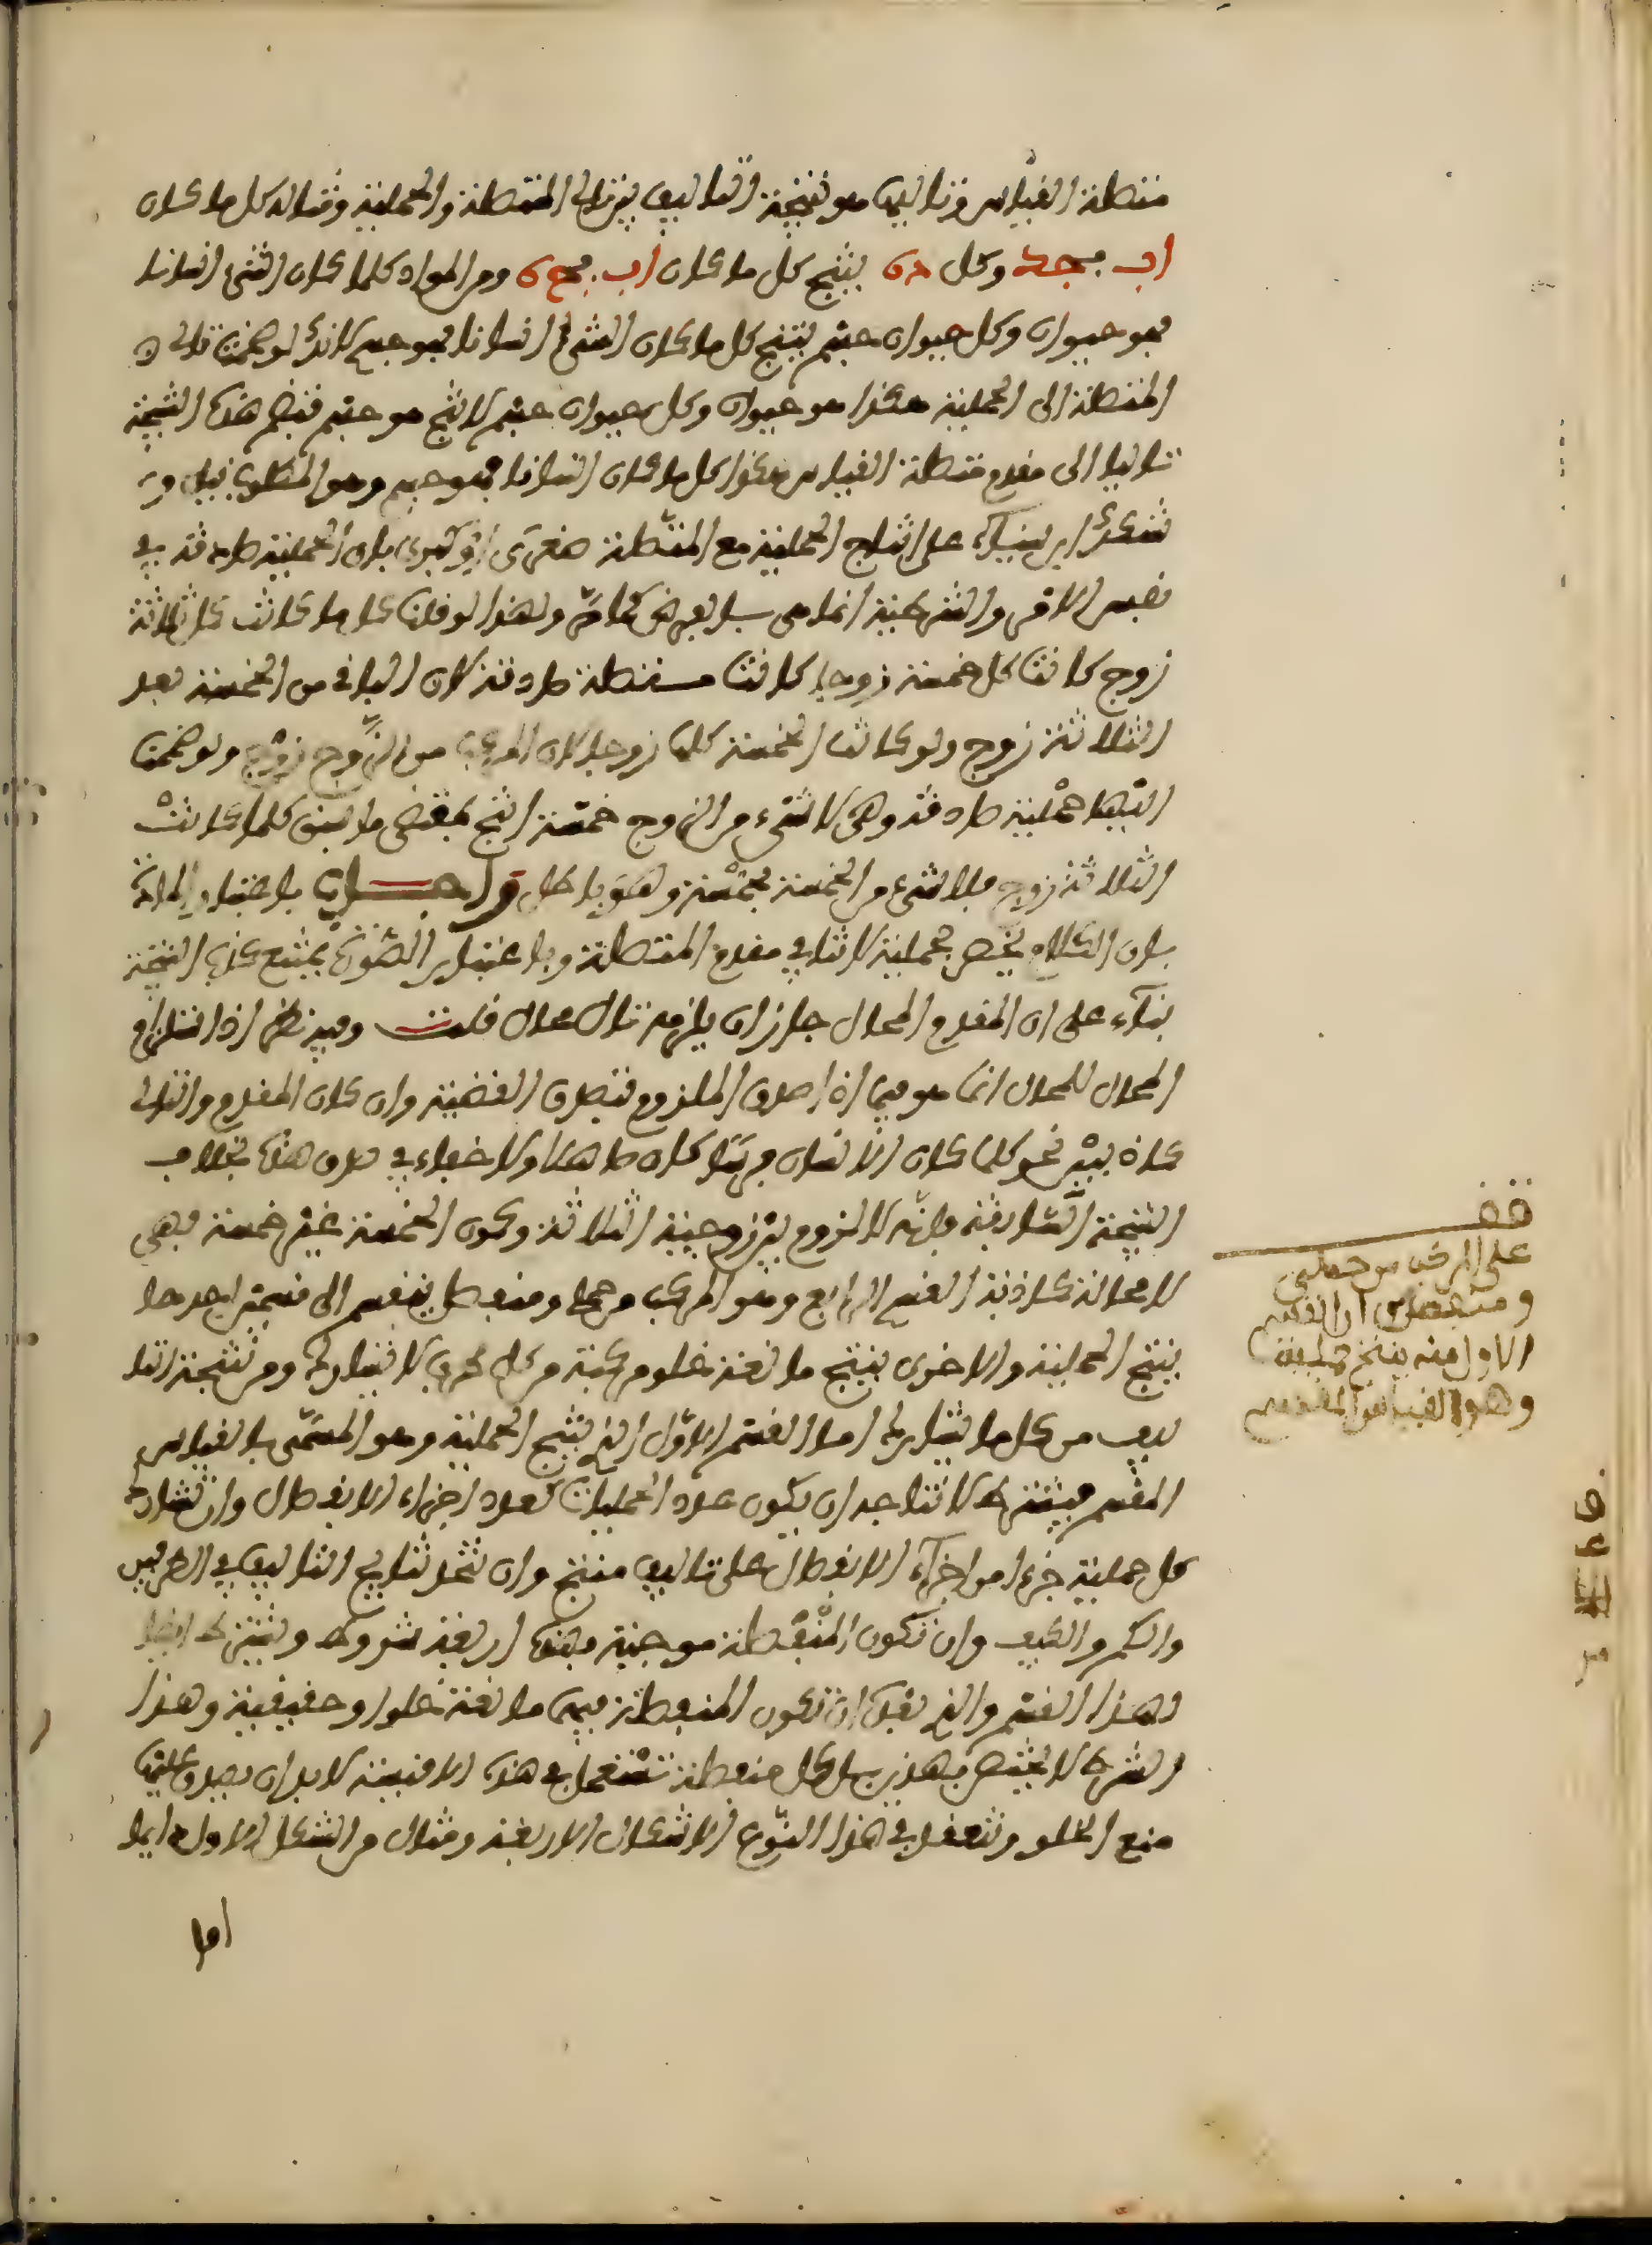 متصلة القياس وتاليها هو نتيجة التاليف بين تالي المتصلة والحملية ومثاله كل ما كان
اب فجد وكل دة ينتج كل ما كان اب فجة ومن المواد كلما كان الشيء انسانا
فهو حيوان وكل حيوان جسم ينتج كل ما كان الشيء انسانا فهو جسم لانك لو ضممت تالى
المتصلة الى الحملية هكذا هو حيوان وكل حيوان جسم لانتج هو جسم فتضم هذه النتيجة
تاليا الى مقدم متصلة القياس هكذا كل ما كان انسانا فهو جسم وهو المطلوب
ابن سيناء على انتاج الحملية مع المتصلة صغرى او كبرى بان الحملية صادقة في
نفس الامر والشرطية انما هى بالفرض كما مر ولهذا لو قلنا كل ما كانت كل ثلاثة
زوج كانت كل خمسة زوجا كانت متصلة صادقة لان الباقى من الخمسة بعد
الثلاثة زوج ولو كانت الخمسة كلها زوجا لكان المركب من الزوج زوج ولو ضممنا
اليها حملية صادقة وهى لا شىء من الزوج خمسة انتج بمقتضى ما سبق كلما كانت
الثلاثة زوج فلا شىء من الخمسة بخمسة وهو باطل واجاب باعتبار المادة
بان الكلام يخص بحملية لا تنافي مقدم المتصلة وباعتبار الصورة بمنع كذب النتيجة
بناء على ان المقدم المحال جاز ان يلزمه تال محال قلت وفيه نظر اذ استلزام
المحال للمحال انما هو فيما اذا صدق الملزوم فتصدق القضية وان كان المقدم والتالى
كاذبين نحو كلما كان الانسان فرسا كان صاهلا ولا خفاء في صدق هذه بخلاف
النتيجة السابقة فانه لا لزوم بين زوجية الثلاثة وكون الخمسة غير خمسة فهى
لا محالة كاذبة القسم الرابع وهو المركب من حملى ومنفصل ينقسم الى قسمين احدهما
ينتج الحملية والاخرى ينتج مانعة خلو مركبة من كل طرف لا يشارك ومن نتيجة التا
ليف من كل ما يشارك اما القسم الاول الذي ينتج الحملية وهو المسمى بالقياس
المقسم فيشترط لانتاجه ان يكون عدد الحمليات كعدد اجزاء الانفصال وان تشارك
كل حملية جزءا من اجزاء الانفصال على تاليف منتج وان تتحد نتايج التاليف في الطرفين
والكم والكيف وان تكون المنفصلة موجبة فهذه اربعة شروط ويشترط ايضا
لهذا القسم والذي بعده ان تكون المنفصلة فيهما مانعة خلو او حقيقية وهذا
الشرط لا يختص بهذين بل كل منفصلة تستعمل في هذه الاقيسة لا بد ان يصدق عليها
منع الخلو وتنعقد في هذا النوع الاشكال الاربعة ومثال من الشكل الاول دايما
اما
قف
على المركب من حملى
ومنفصل وان القسم
الاول منه ينتج حملية
وهو القياس المقسم